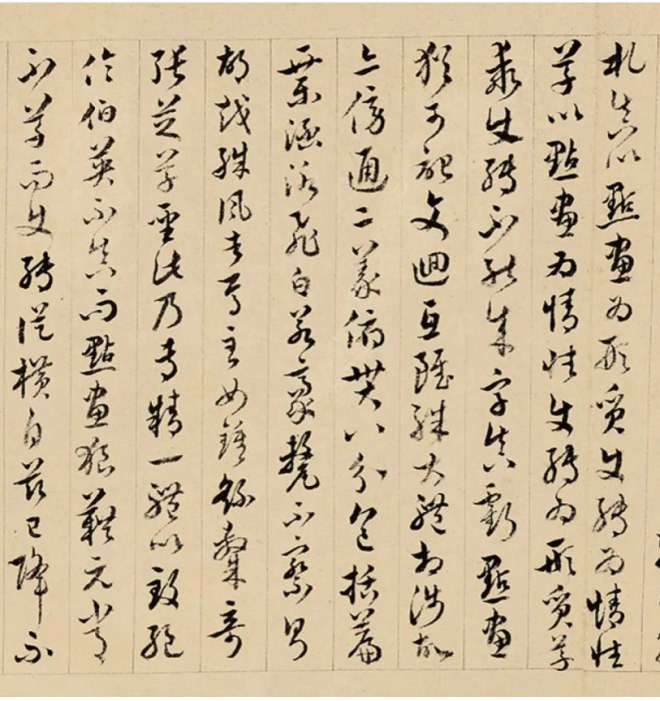 札真以點畫為形質使轉為情性
草以點畫為情性使轉為形質草
乖使轉不能成字真虧點畫
猶可記文迴互雖殊大體相涉故
亦傍通二篆俯貫八分包括篇
章涵泳飛白若毫氂不察則
胡越殊風者焉至如鍾繇隸奇
張芝草聖此乃專精一體以致絕
倫伯英不真而點畫狼藉元常
不草而使轉縱橫自茲已降不